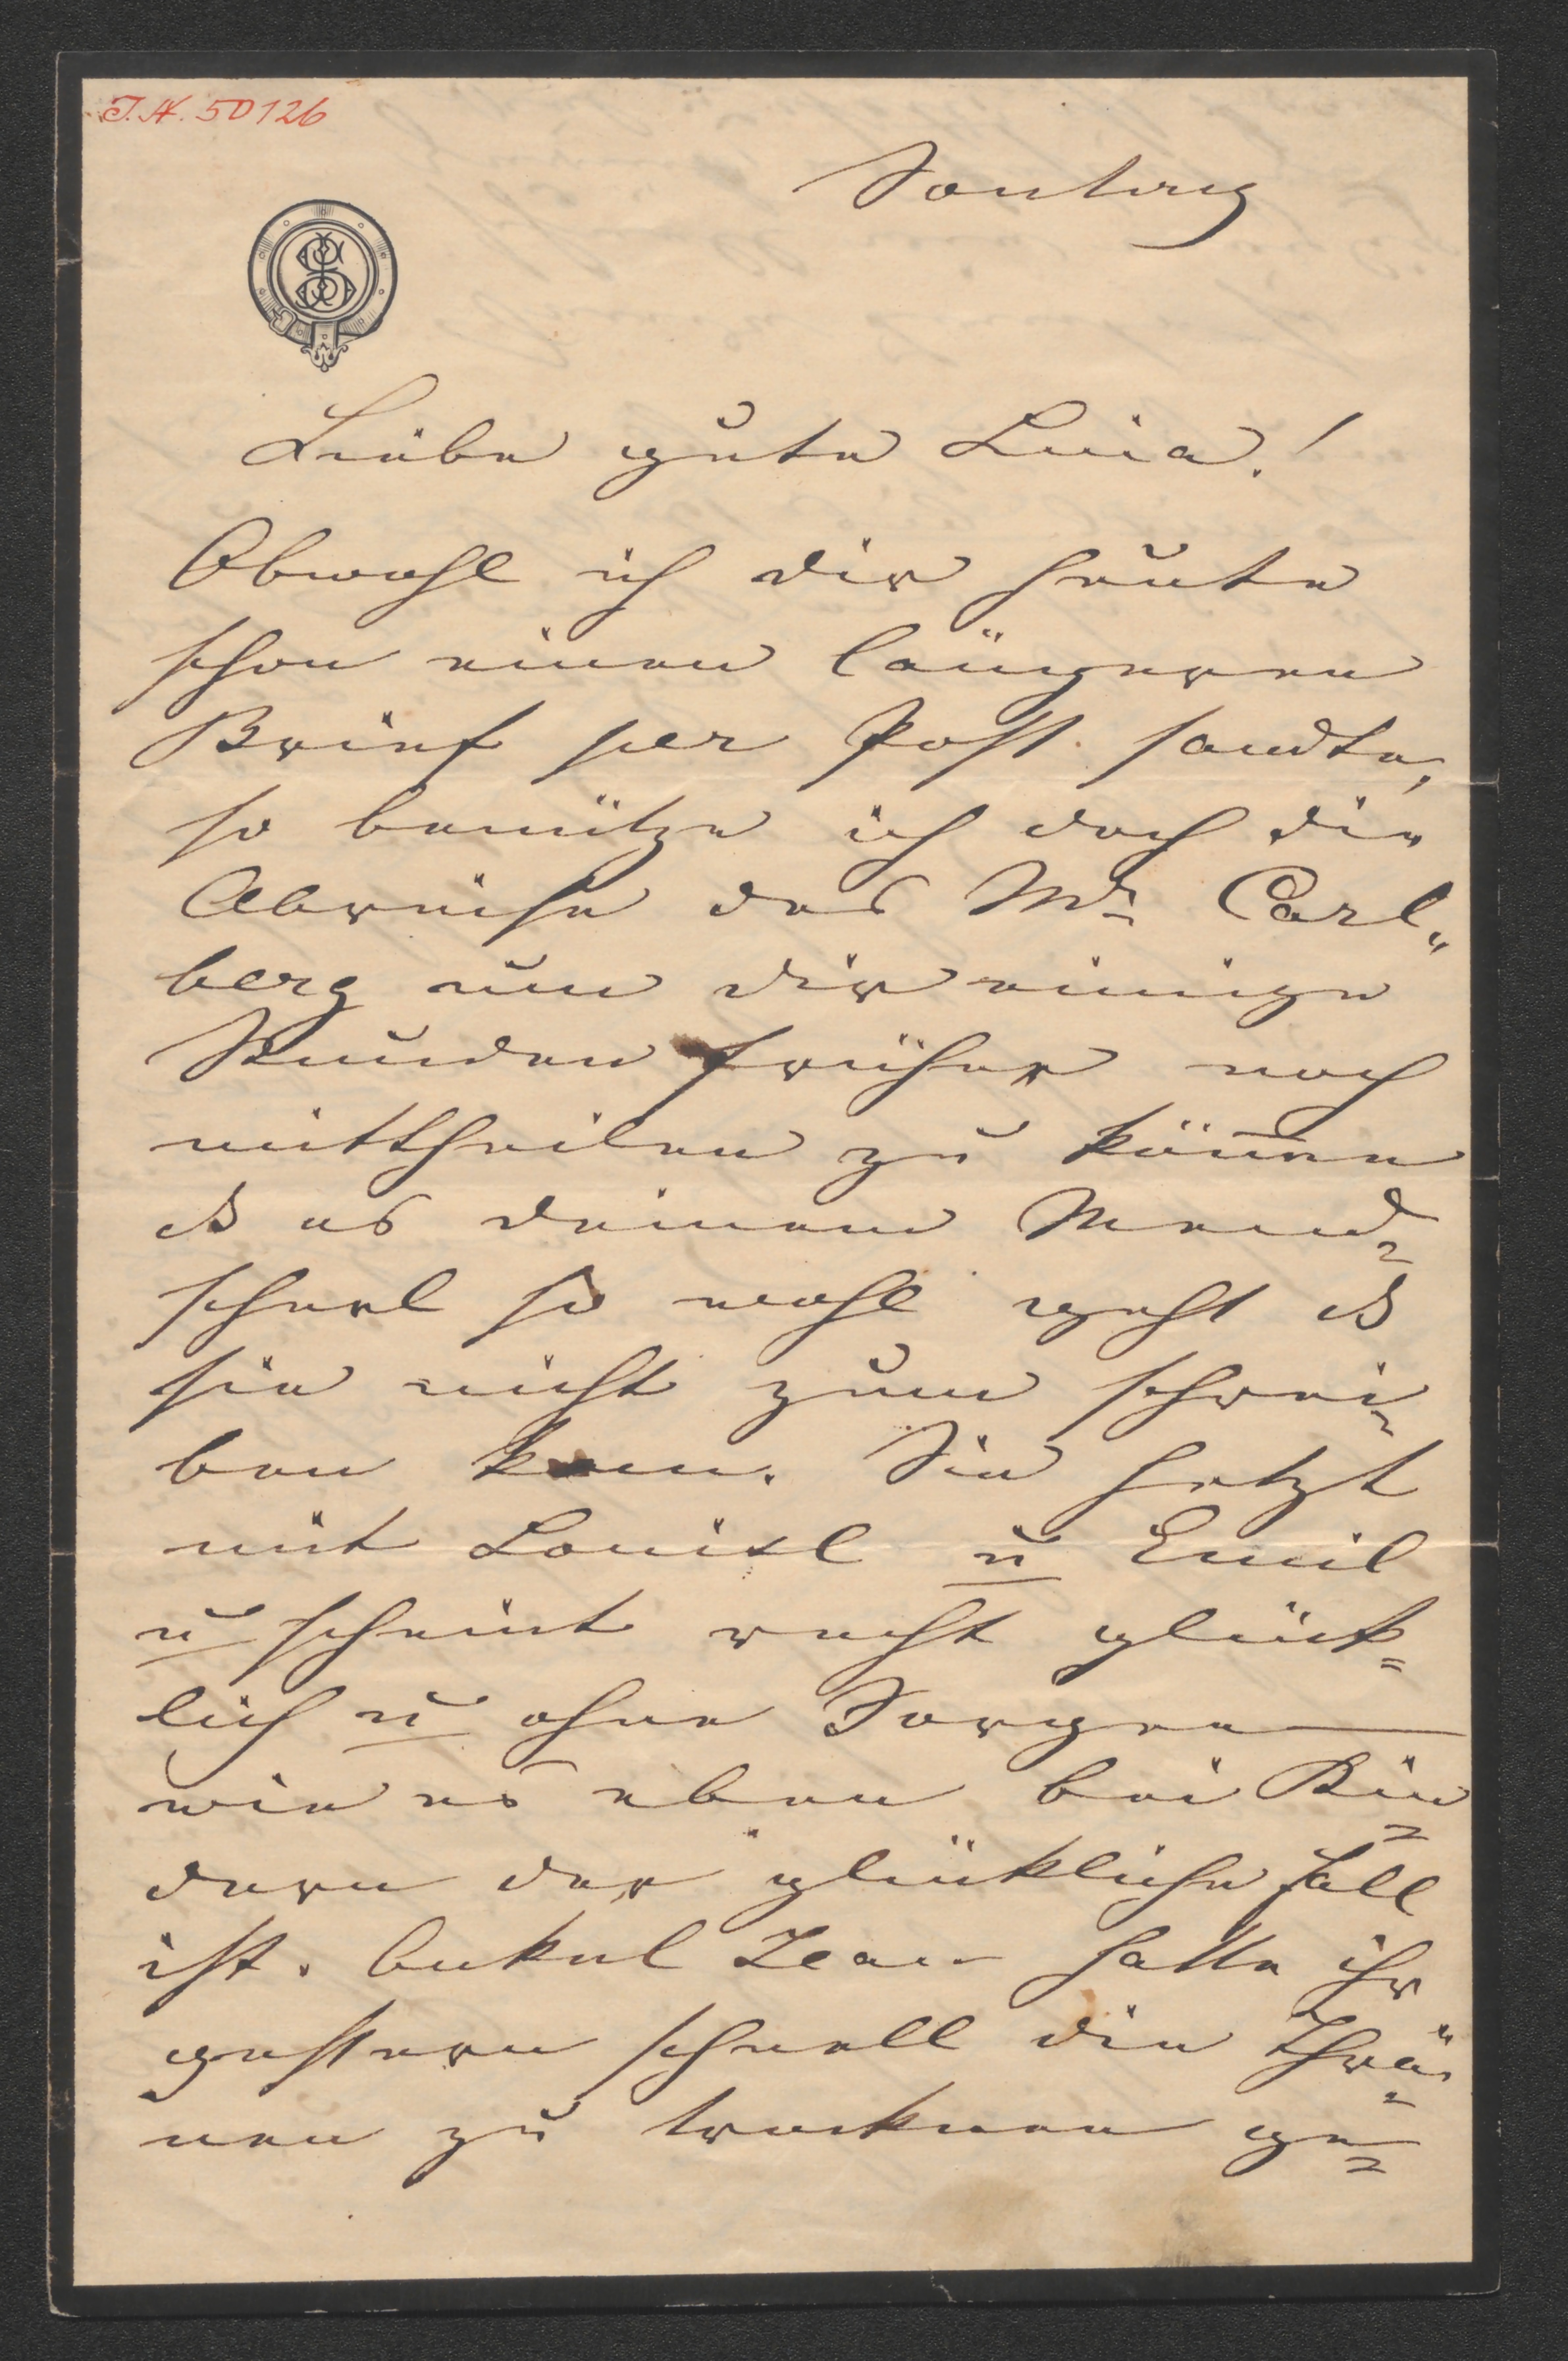 I.N. 50126
Sontag
JS
Liebe gute Lina!
Obwohl ich dir heute
schon einen längeren
Brief per Post sandte,
so benütze ich doch die
Abreise des Mr Carl„
berg um dir einige
Stunden früher noch
mittheilen zu könen
daß es deinem Mend=
scherl so wohl geht daß
sie nicht zum schrei=
ben kam. Sie hetzt
mit Louisl u Emil
u scheint recht glück=
lich u ohne Sorgen
wie es eben bei Kin=
dern der glückliche Fall
ist. Onkel Jean hatte ihr
gestern schnell die Thrä=
nen zu trocknen ge=